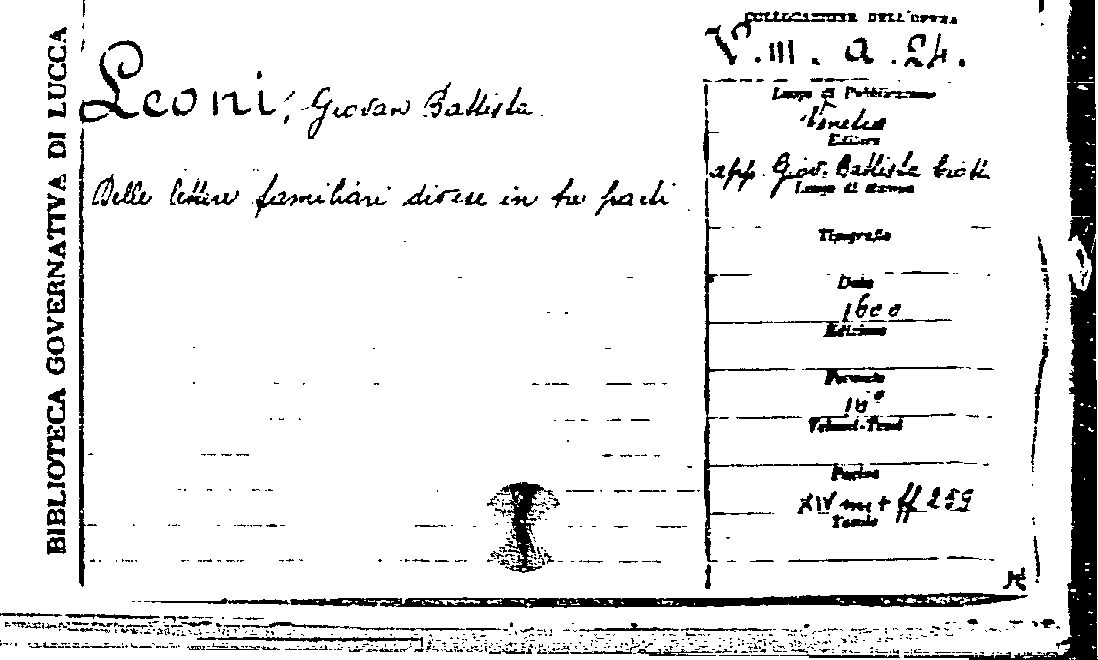 BIBLIOTECA GOVERNATIVA DI LUCCA
Leoni, Giovan Battista
Delle lettere familiari divise in tre parti
COLLOCAZIONE DELL'OPERA
V. III. a. 24.
Luogo di Pubblicazione
Venetia
Editore
app. Giov. Battista Ciotti
Luogo di stampa
Tipografia
Data
1600
Edizione
Formato
16°
Volumi-Tomi
Pagine
XIV nn + ff 259
Tavole